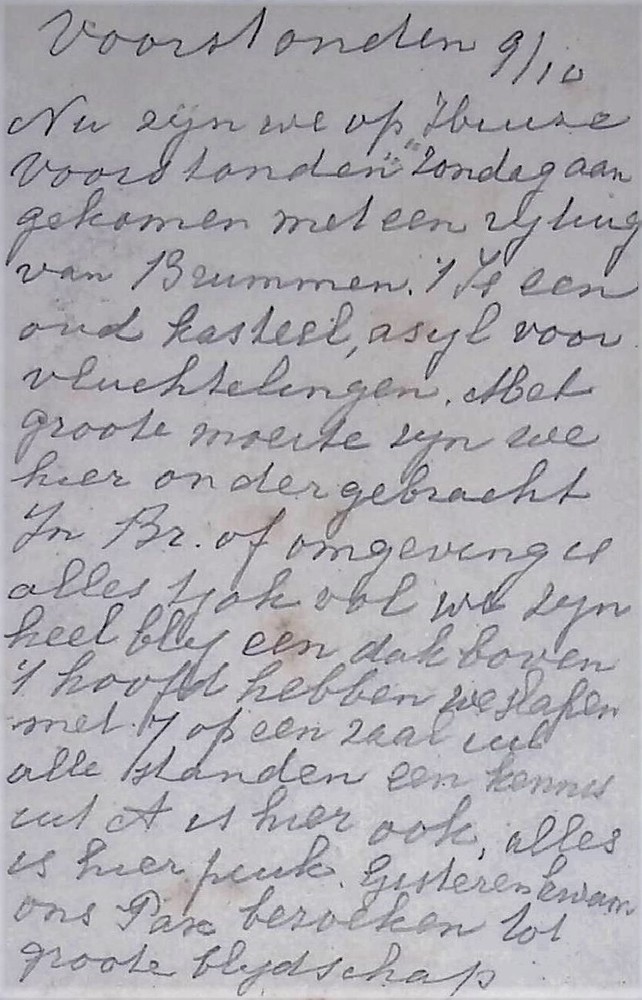 Voorstonden 9/10
Nu zijn we op "Huize
Voorstonden" Zondag aan
gekomen met een rijtuig
van Brummen. 't Is een
oud kasteel, asyl voor
vluchtelingen. Met
groote moeite zyn we
hier ondergebracht
In Br. of omgeving is
alles tjok vol we zyn
heel bly een dak boven
't hoofd hebben we slapen
met 7 op een zaal uit
alle standen een kennis
uit A is hier ook, alles
is hier puik. Gisteren kwam
ons Pax bezoeken tot
groote blydschap